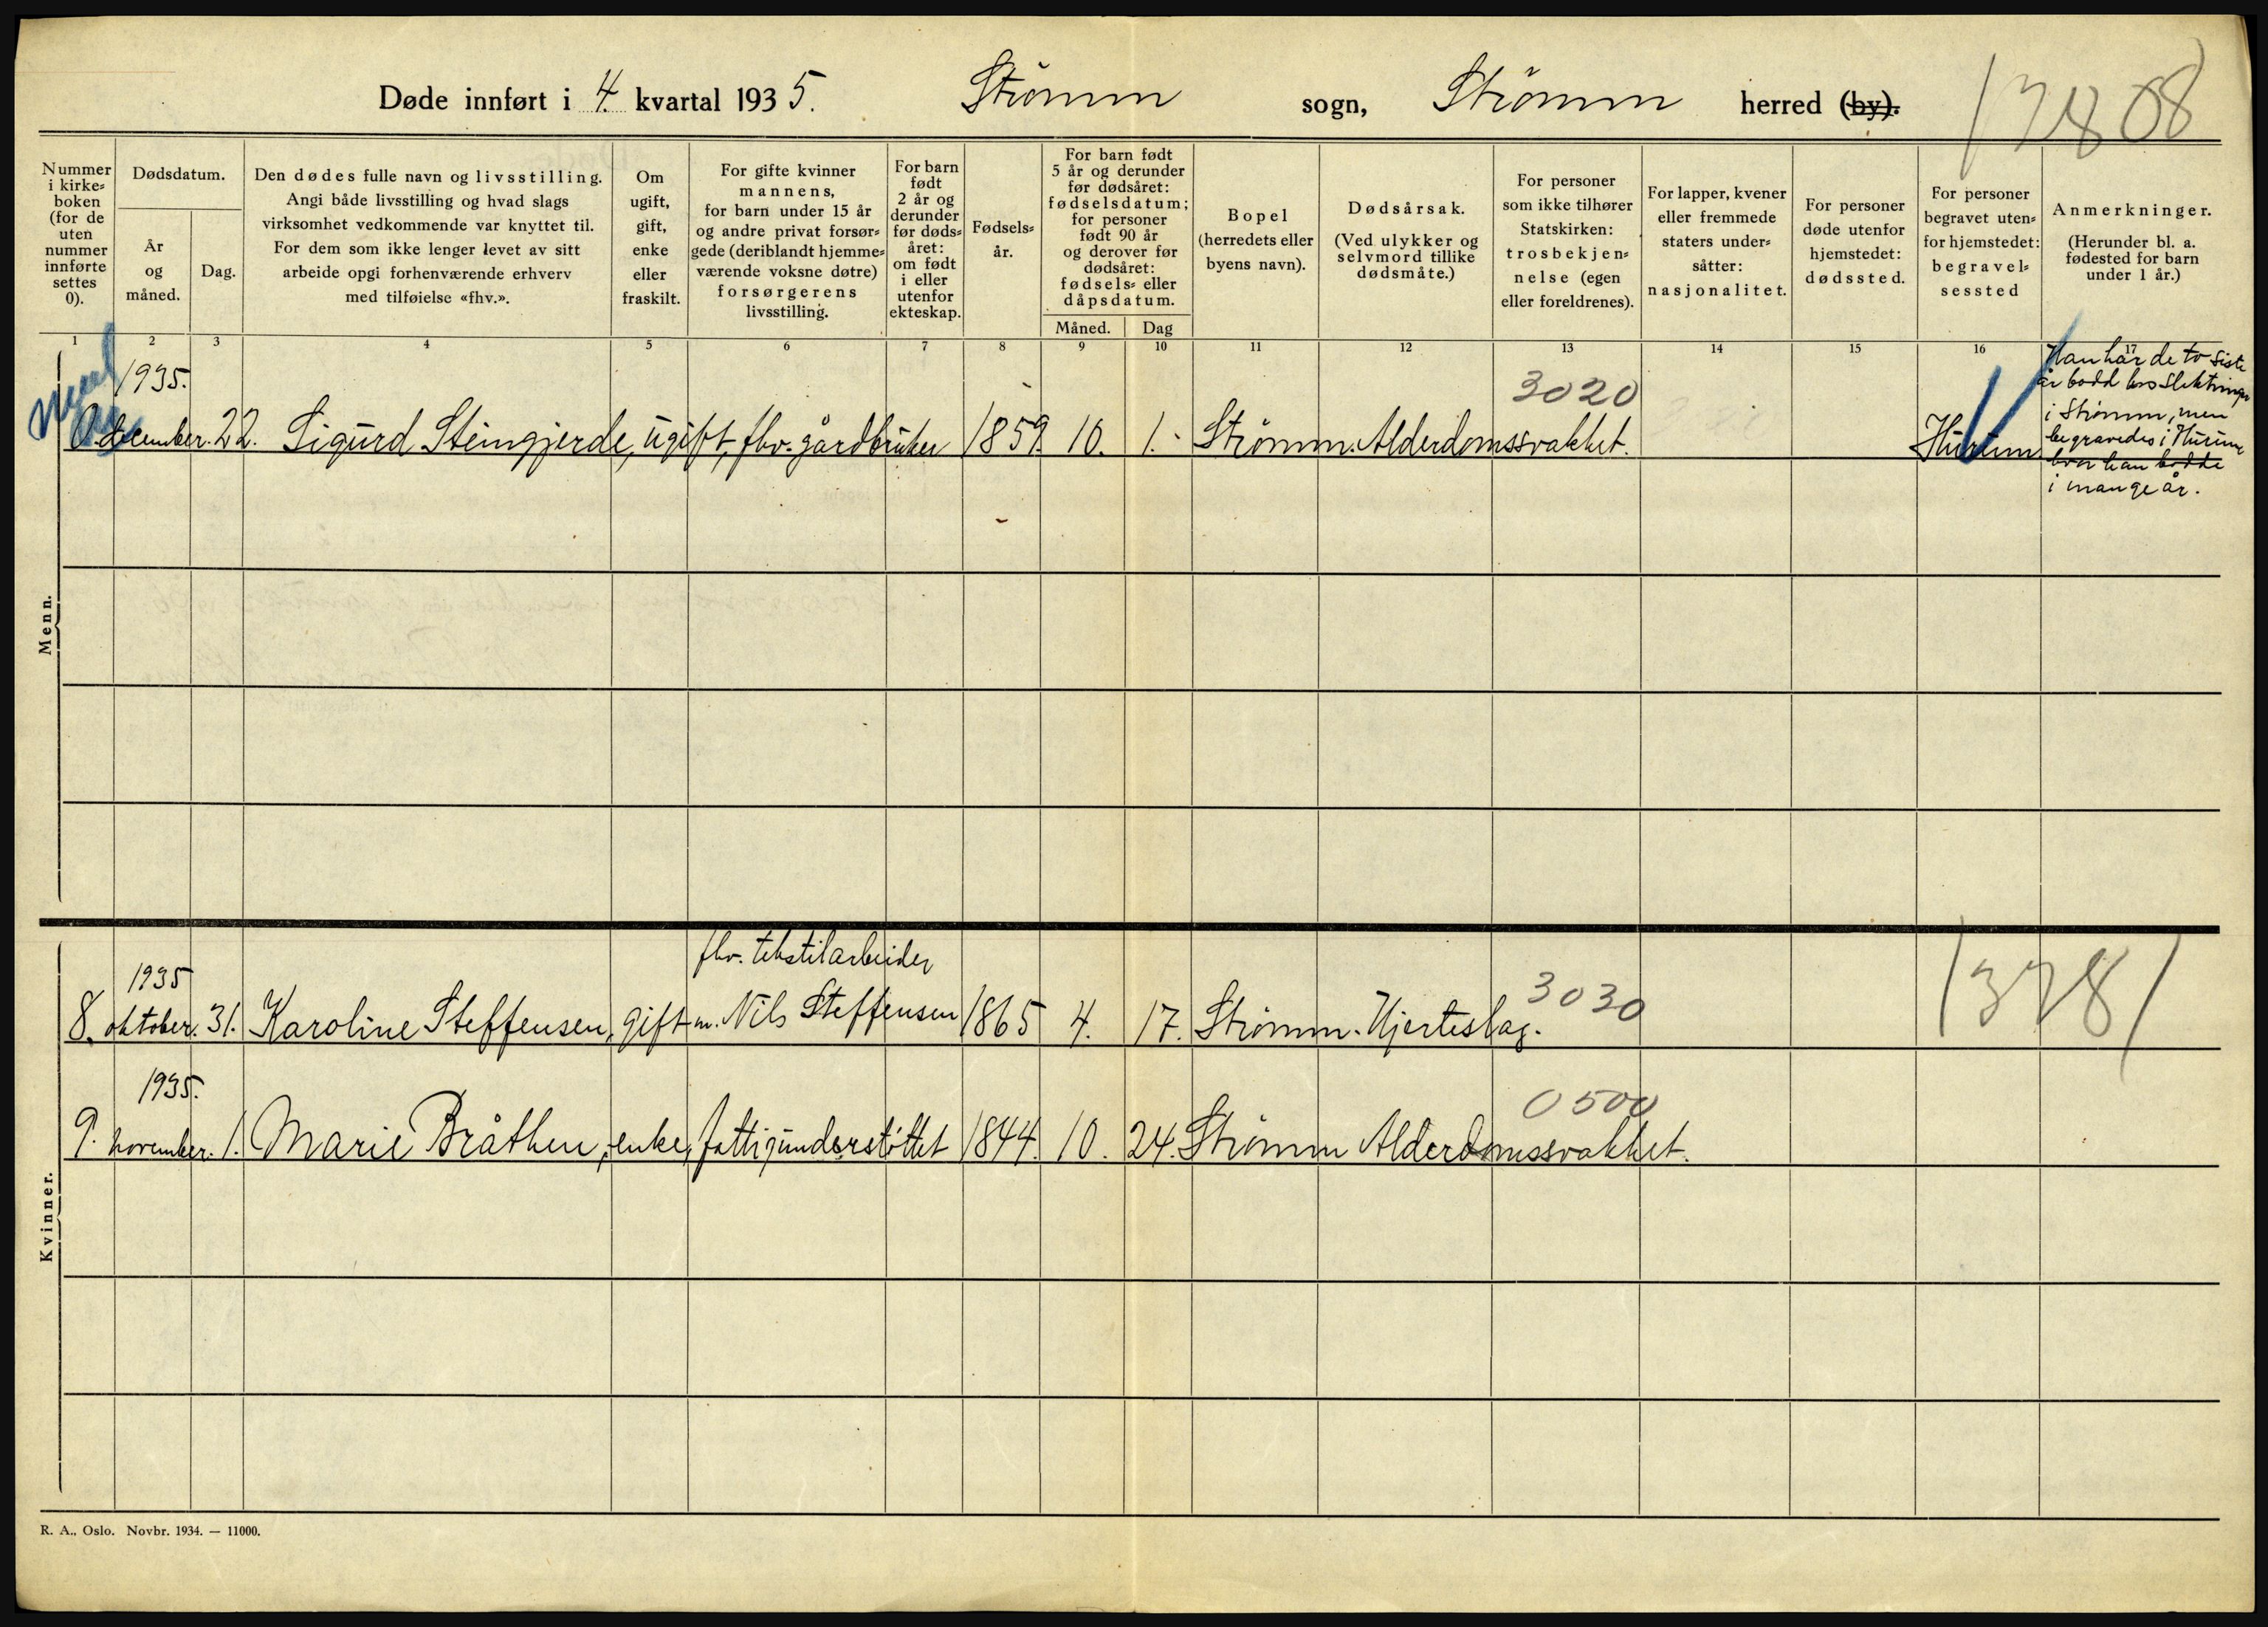 Døde innført i 4. kvartal 1935. Strømm sogn, Strømm herred (by).
Nummer i kirke= boken (for de uten nummer innførte settes 0).
Dødsdatum.
År og måned.
Dag.
Den dødes fulle navn og livsstilling.
Angi både livsstilling og hvad slags
virksomhet vedkommende var knyttet til.
For dem som ikke lenger levet av sitt
arbeide opgi forhenværende erhverv
med tilføielse «fhv.».
Om ugift, gift, enke eller fraskilt.
For gifte kvinner
mannens,
for barn under 15 år
og andre privat forsør=
gede (deriblandt hjemme=
værende voksne døtre)
forsørgerens
livsstilling.
For barn født 2 år og derunder før døds= året: om født i eller utenfor ekteskap.
Fødsels= år.
For barn født
5 år og derunder
før dødsåret:
fødselsdatum;
for personer
født 90 år
og derover før
dødsåret:
fødsels= eller
dåpsdatum.
Måned. Dag
Bopel
(herredets eller
byens navn).
Dødsårsak.
(Ved ulykker og
selvmord tillike
dødsmåte.)
For personer
som ikke tilhører
Statskirken:
trosbekjen=
nelse (egen
eller foreldrenes).
For lapper, kvener
eller fremmede
staters under=
såtter:
nasjonalitet.
For personer
døde utenfor
hjemstedet:
dødssted.
For personer
begravet uten=
for hjemstedet:
begravel=
sessted
Anmerkninger.
(Herunder bl. a.
fødested for barn
under 1 år.)
1 2 3 4 5 6 7 8 9 10 11 12 13 14 15 16 17
Menn.
1935.
3020
0. december. 22. Sigurd Steingjerde, ugift, fhv. gårdbruker 1859. 10. 1. Strømm. Alderdomssvakhet. Hurum
Han har de to siste
år bodd hos slektninger
i Strømm, men
begravedes i Hurum
hvor han bodde
i mange år.
Kvinner.
fhv. tekstilarbeider
1935
3030
8. oktober. 31. Karoline Steffensen, gift m. Nils Steffensen 1865 4. 17. Strømm. Hjerteslag.
1935.
0500
9. november. 1. Marie Bråthen, enke, fattigunderstøttet 1844. 10. 24. Strømm Alderdomssvakhet.
R. A.. Oslo. Novbr. 1934. — 11000.